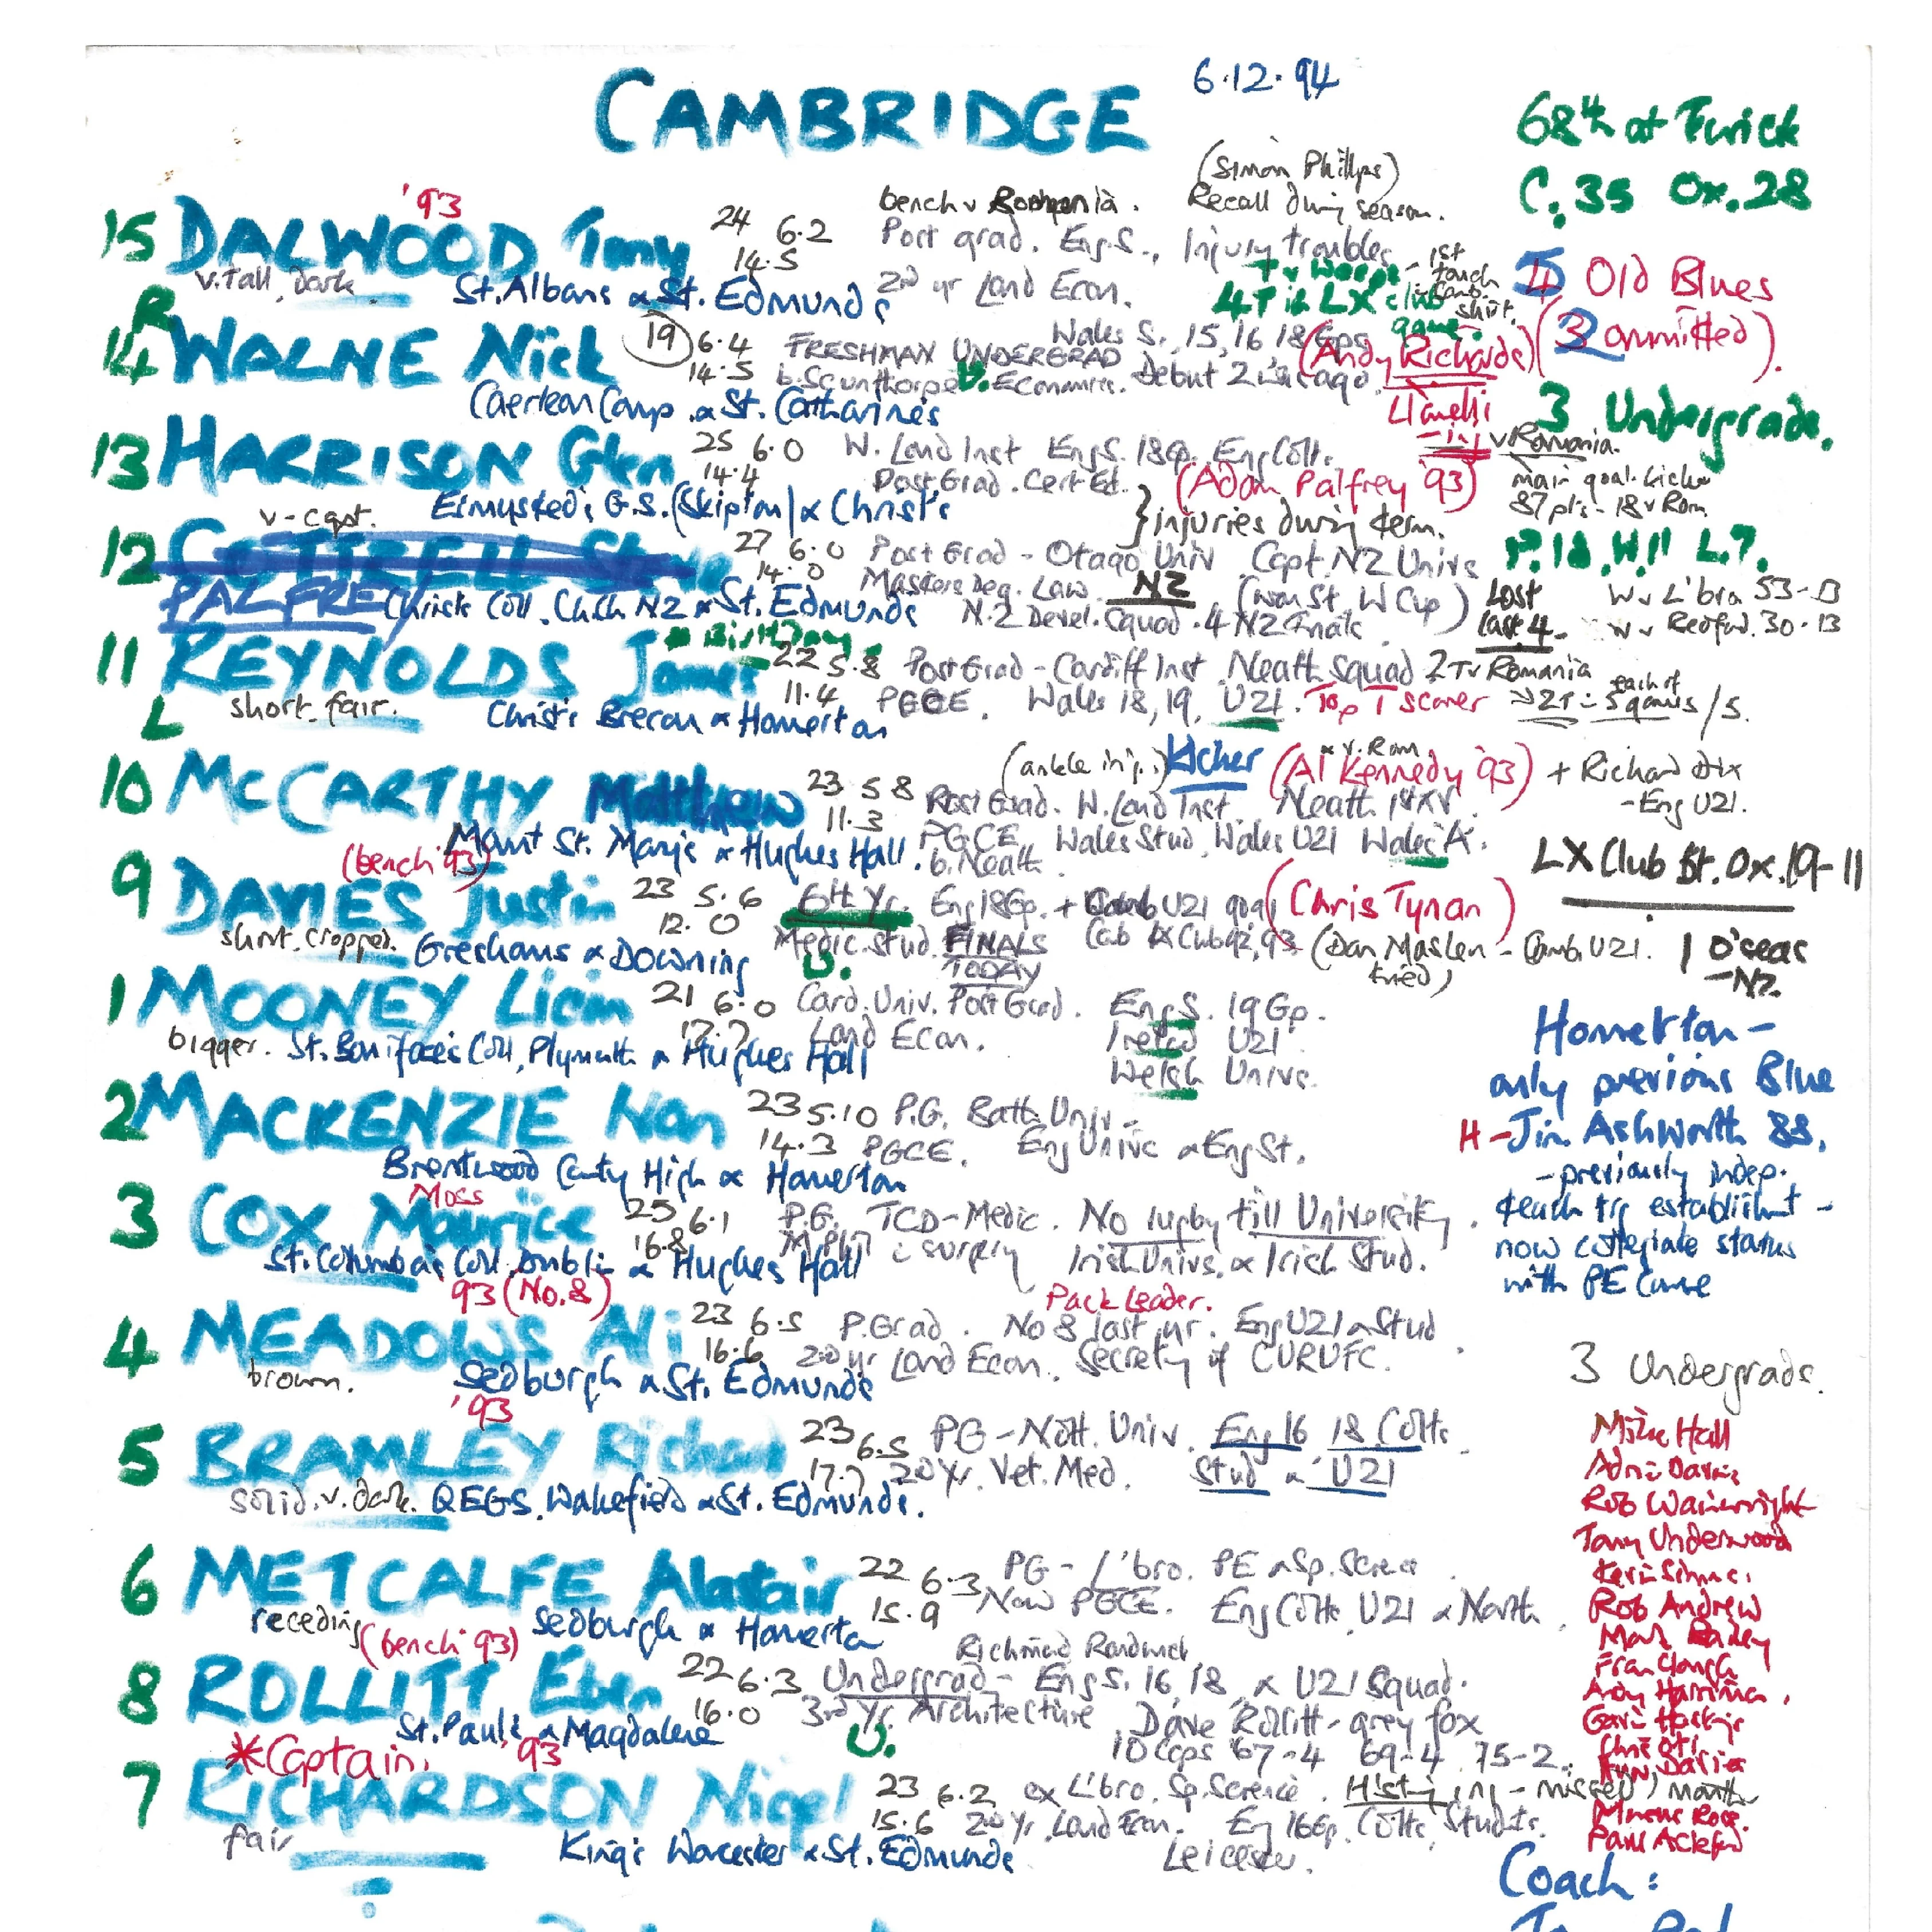 CAMBRIDGE
6.12.94
68th at Twick
C. 35 Ox. 28
4 Old Blues
(3 omitted).
3 Undergrads.
(Simon Phillips)
'93
bench v Romania. Recall during season.
15 DALWOOD Tony 24 6.2
14.5
Post grad. Eng.S., Injury troubles
v. tall, dark St. Albans & St. Edmunds 2nd yr Land Econ.
1st touch Camb. shirt.
4T in LX club game.
R
14 WALNE Nick 19 6.4
14.5
Wales S., 15, 16 18 Gps
FRESHMAN UNDERGRAD
(Andy Richards)
b. Scunthorpe U. Economics. Debut 2 ago
Llanelli
- inj
Caerleon Comp. & St. Catharine's
13 HARRISON Glen 25 6.0
14.4
W. Lond Inst Eng S. 18Gp. Eng Colts.
Post Grad. Cert Ed. (Adam Palfrey '93)
v Romania.
main goal kicker
87 pts - 18 v Rom
Ermysted's G.S. (Skipton) & Christ's
} injuries during term.
v-capt.
12 COTTRELL 27 6.0
14.0
PALFREY
Post Grad - Otago Univ Capt. NZ Univs
Masters Deg. Law. NZ (won St. W Cup)
Christ's Coll. Ch.Ch NZ & St. Edmunds N.Z Devel. Squad. 4 NZ Finals
P. 18. W. 11 L. 7.
Lost last 4.
W v L'bro 53-13
W v Bedford. 30-13
Birthday
11 REYNOLDS James 22 5.8
11.4
L
Post Grad - Cardiff Inst Neath Squad 2T v Romania
PGCE. Wales 18, 19, U21. Top T scorer
each of 5 games
short. fair. Christ's Brecon & Homerton
(ankle inj.) Kicker (Al Kennedy '93) + Richard Dix
- Eng U21.
10 McCARTHY Matthew 23 5 8
11.3
Post Grad. W. Lond Inst. Neath 1st XV.
PGCE. Wales Stud, Wales U21 Wales A.
Mount St. Mary's & Hughes Hall. b. Neath
LX Club bt. Ox. 19-11
(bench '93)
9 DAVIES Justin 23 5.6
12.0
6th Yr. Eng 18Gp. + Camb U21 (Chris Tynan)
Medic. Stud. FINALS TODAY
(Dan Maslen - Camb. U21. tried)
short. cropped. Greshams & Downing
U.
1 O'seas
- NZ.
1 MOONEY Liam 21 6.0
Card. Univ. Post Grad. Eng S. 19 Gp.
Land Econ. Ireland U21
Welsh Univs.
bigger. St. Boniface's Coll, Plymouth & Hughes Hall
Homerton -
only previous Blue
H - Jim Ashworth 88.
- previously indep.
teach trg establishmt -
now collegiate status
with PE Course
2 MACKENZIE Ian 23 5.10
14.3
P.G. Bath Univ -
PGCE. Eng Univs & Eng St.
Brentwood County High & Homerton
Moss
3 COX Maurice 25 6.1
16.8
P.G. TCD - Medic. No rugby till University.
M Phil in surgery Irish Univs. & Irish Stud.
St. Columba's Coll. Dublin & Hughes Hall
93 (No. 8)
Pack Leader.
4 MEADOWS Ali 23 6.5
16.6
P. Grad. No 8 last yr. Eng U21 & Stud
2nd yr Land Econ. Secretary of CURUFC.
brown. Sedburgh & St. Edmunds
3 Undergrads.
'93
5 BRAMLEY Richard 23 6.5
17.7
PG - Nott. Univ. Eng 16 18 Colts
2nd Yr. Vet. Med. Stud & U21
solid. v. dark. QEGS. Wakefield & St. Edmunds.
6 METCALFE Alastair 22 6.3
15.9
PG - L'bro. PE & Sp. Science
Now PGCE. Eng Colts U21 & North
receding Sedburgh & Homerton
(bench '93)
Richmond Randwick
8 ROLLITT Eben 22 6.3
16.0
Undergrad - Eng S. 16, 18, & U21 Squad.
3rd Yr. Architecture Dave Rollitt - grey fox
St. Paul's & Magdalene
U.
10 Caps '67-4 69-4 75-2.
*Captain. '93
7 RICHARDSON Nigel 23 6.2
15.6
ex L'bro. Sp. Science. H'stg inj - missed month
2nd Yr. Land Econ. Eng 16Gp. Colts, Students.
Leicester.
fair King's Worcester & St. Edmunds
Mike Hall
Rob Wainwright
Tony Underwood
Kevin Simms.
Rob Andrew
Mark Bailey
Fran Clough
Andy Harriman.
Chris Oti
Marcus Rose.
Paul Ackford
Coach: